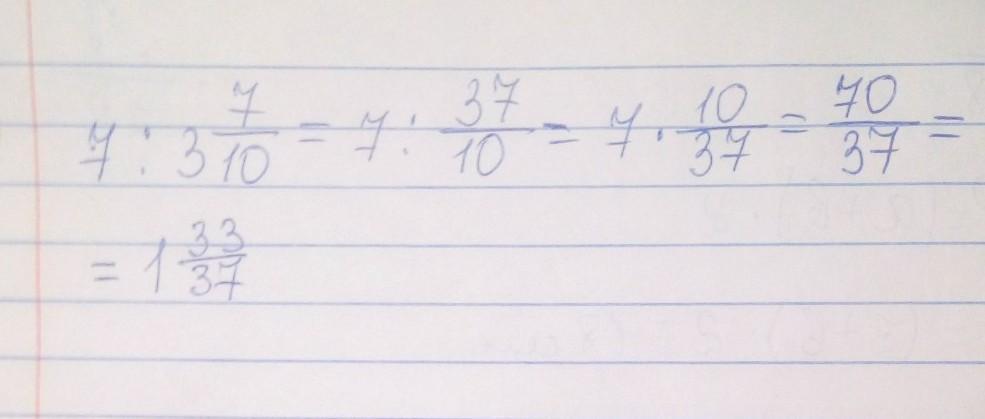 7 : 3 7/10 = 7 : 37/10 = 7 · 10/37 = 70/37 =
= 1 33/37